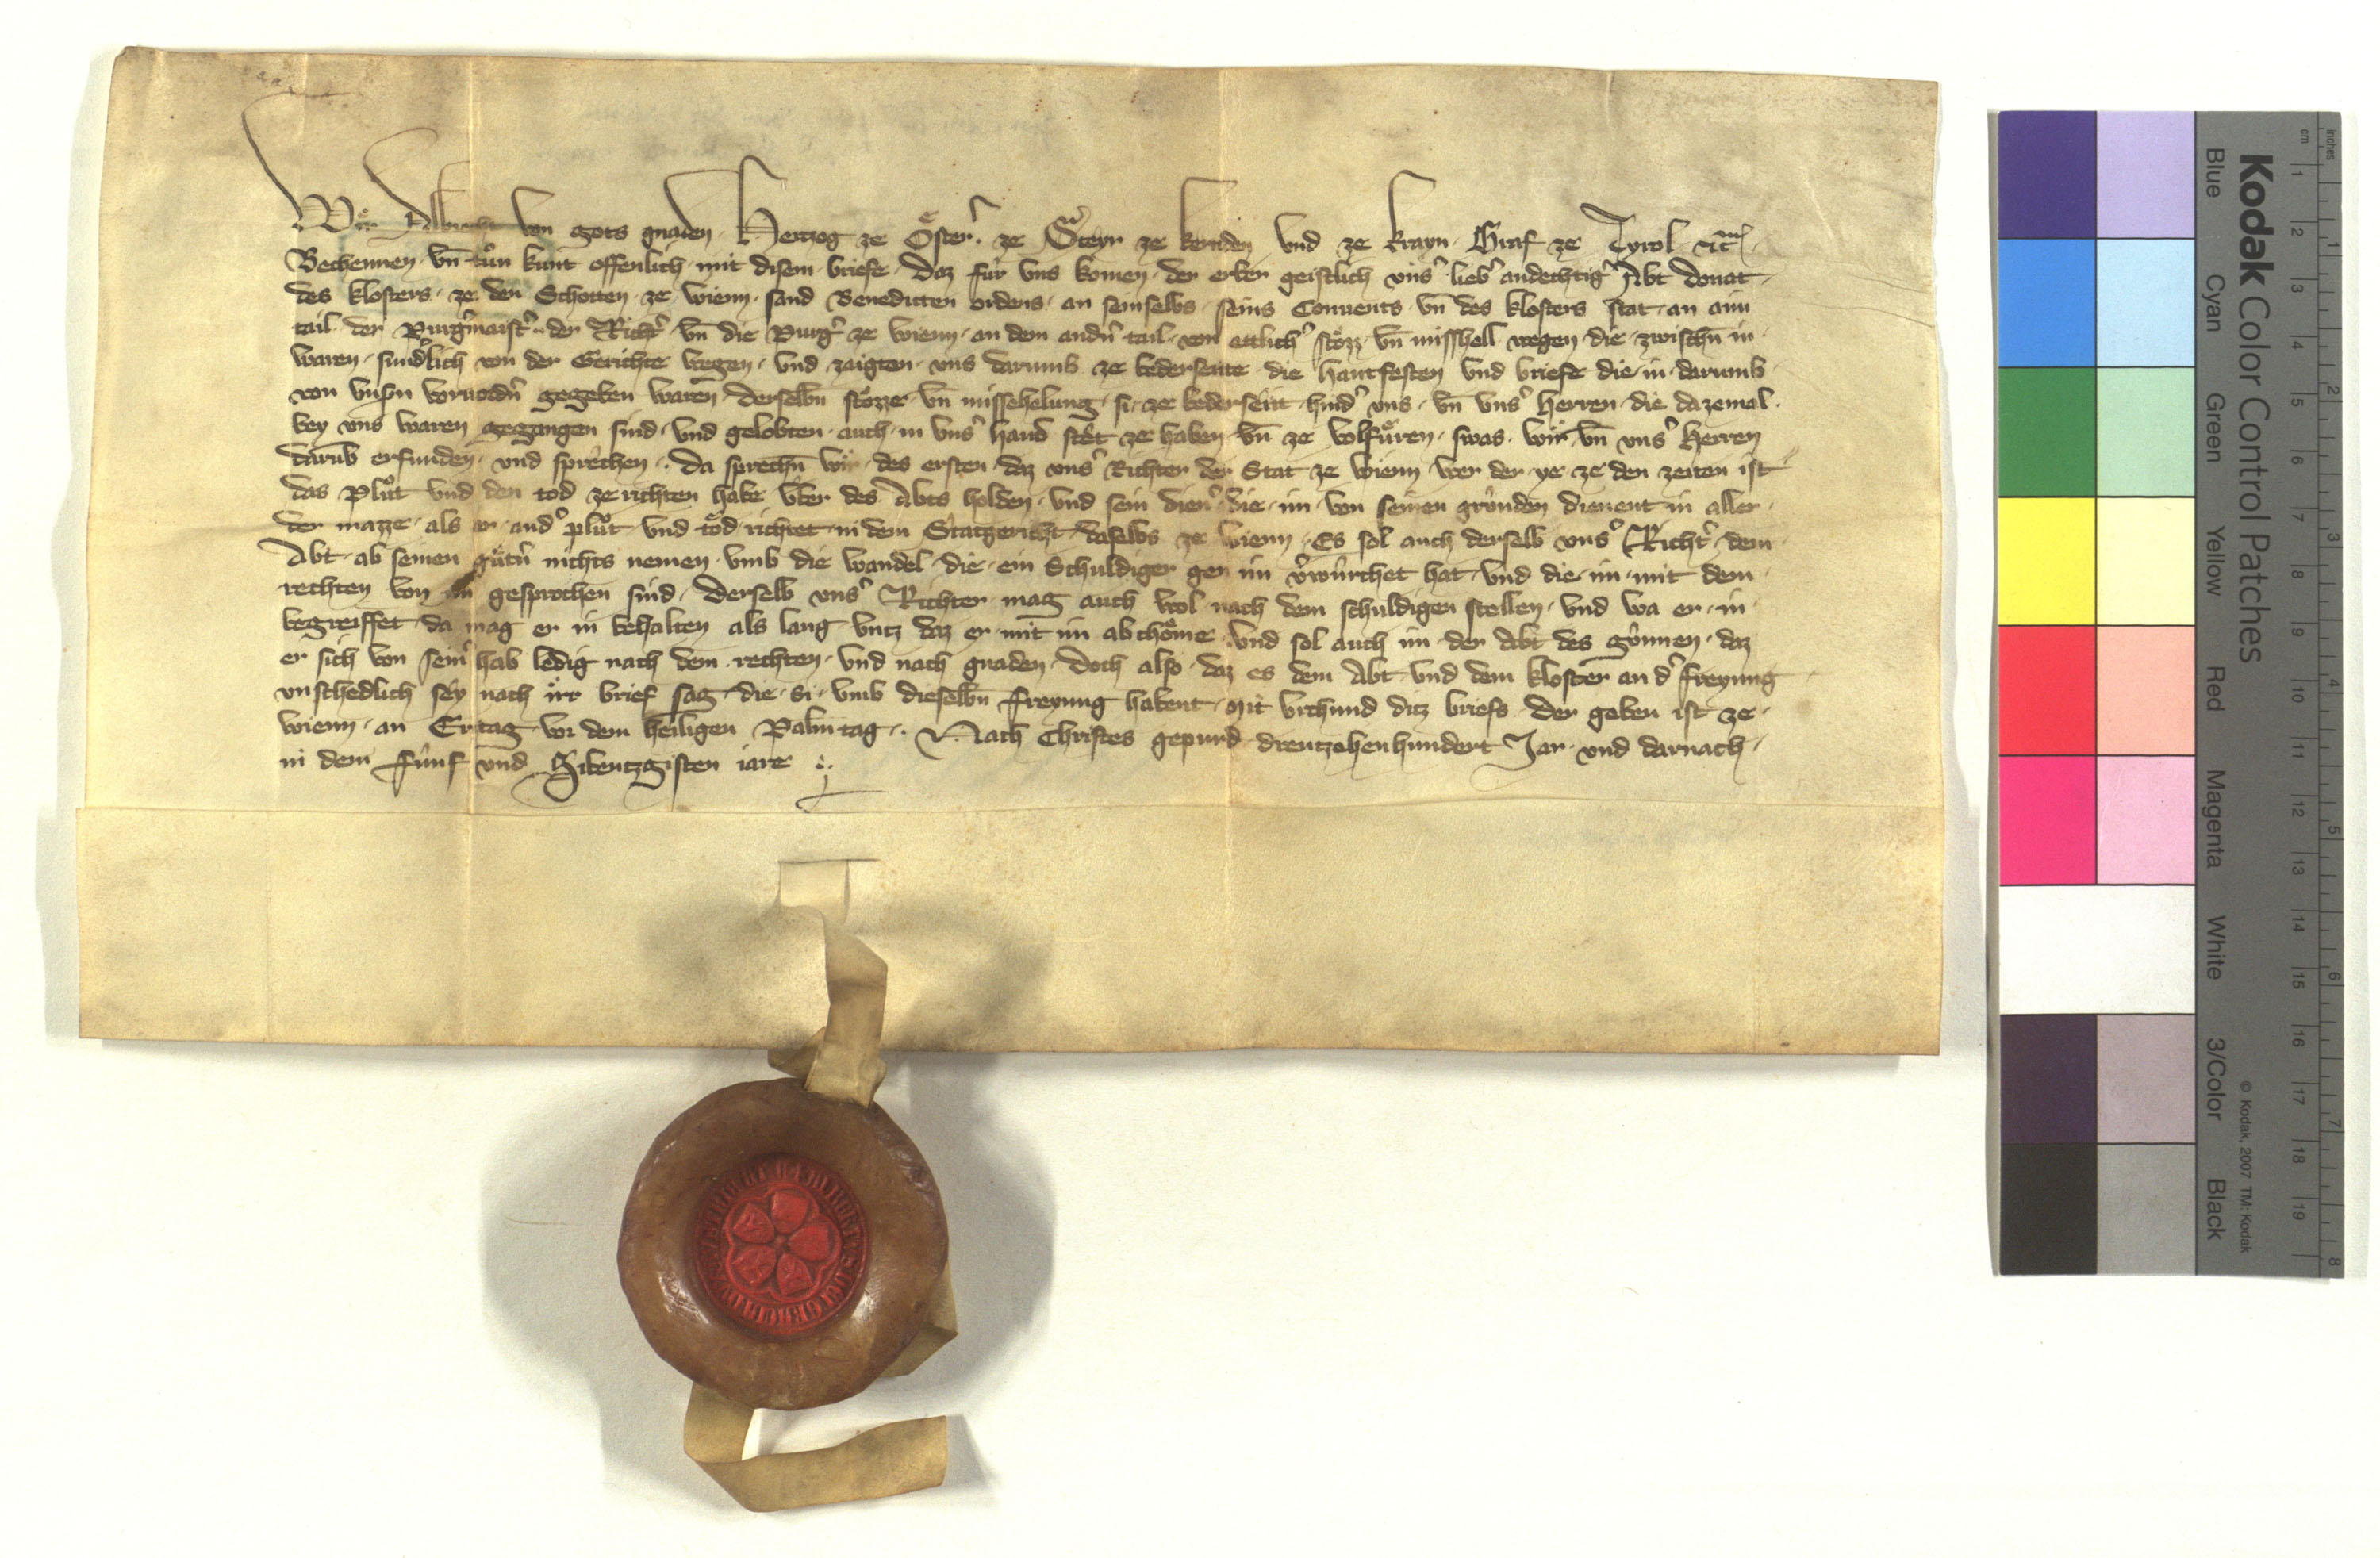 Wir Albrecht von gots gnaden Hertzog ze Öster̉ ze Steyr ze kernden vnd ze krayn Graf ze Tyrol ꝛc̄
Bechennen vn̄ tůn kunt offenlich mit disem briefe Daz für vns komen der erber geistlich vnsˀ liebˀ andechtigˀ Abt donat
des klosters ze den Schotten ze wienn sand Benedicten ordens an seinselbs seins Conuents vn̄ des klosters stat an aim
tail der Purgˀmaistˀ der Richtˀ vn̄ die Purgˀ ze wienn an dem andˀn tail von ettlichˀ stözz vn̄ misshell wegen die zwischn̄ in
waren sundˀlich von der Gerichte wegen vnd zaigten vns darumb ze bederseitte die hantfesten vnd briefe die in darumb
von vnsˀn voruordˀn gegeben waren derselbn̄ stözze vn̄ missehelung si ze bederseitt hindˀ vns vn̄ vnsˀ Herren die dazemal
bey vns waren gegangen sind vnd gelobten auch in vnsˀ hand stêt ze haben vn̄ ze volfüren swas wir vn̄ vnsˀ Herren
darūb erfunden vnd sprechen Da sprechn̄ wir des ersten daz vnsˀ Richter der Stat ze wienn wer der ye ze den zeiten ist
das Plůt vnd den tod ze richten habe vber des Abts holden vnd sein dienˀ die im von seinen gründen dienent in aller
der mazze als er andˀ plůt vnd töd richtet in dem Statgericht daselbs ze wienn Es sol auch derselb vnsˀ Richtˀ dem
Abt ab seinen gütˀn nichts nemen vmb die wandel die ein Schuldiger gen im vˀwürchet hat vnd die im mit dem
rechten von im gesprochen sind derselb vnsˀ Richter mag auch wol nach dem schuldigen stellen vnd wa er in
begreiffet da mag er in behalten als lang vntz daz er mit im abchöme vnd sol auch im der Abt des günnen daz
er sich von seinˀ hab ledig nach dem rechten vnd nach gnaden doch also daz es dem Abt vnd dem kloster an dˀ freyung
vnschedlich sey nach irr brief sag die si vmb dieselbn̄ freyung habent mit vrchund ditz briefs der geben ist ze
wienn an Eritag vor dem heiligen Palmtag Nach Christes gepurd dreutzehenhundert Jar vnd darnach
in dem fünf vnd Sibentzgisten iare
Kodak Color Control Patches
Blue Cyan Green Yellow Red Magenta White 3/Color Black
© Kodak, 2007 TM: Kodak
cm 1 2 3 4 5 6 7 8 9 10 11 12 13 14 15 16 17 18 19
inches 1 2 3 4 5 6 7 8